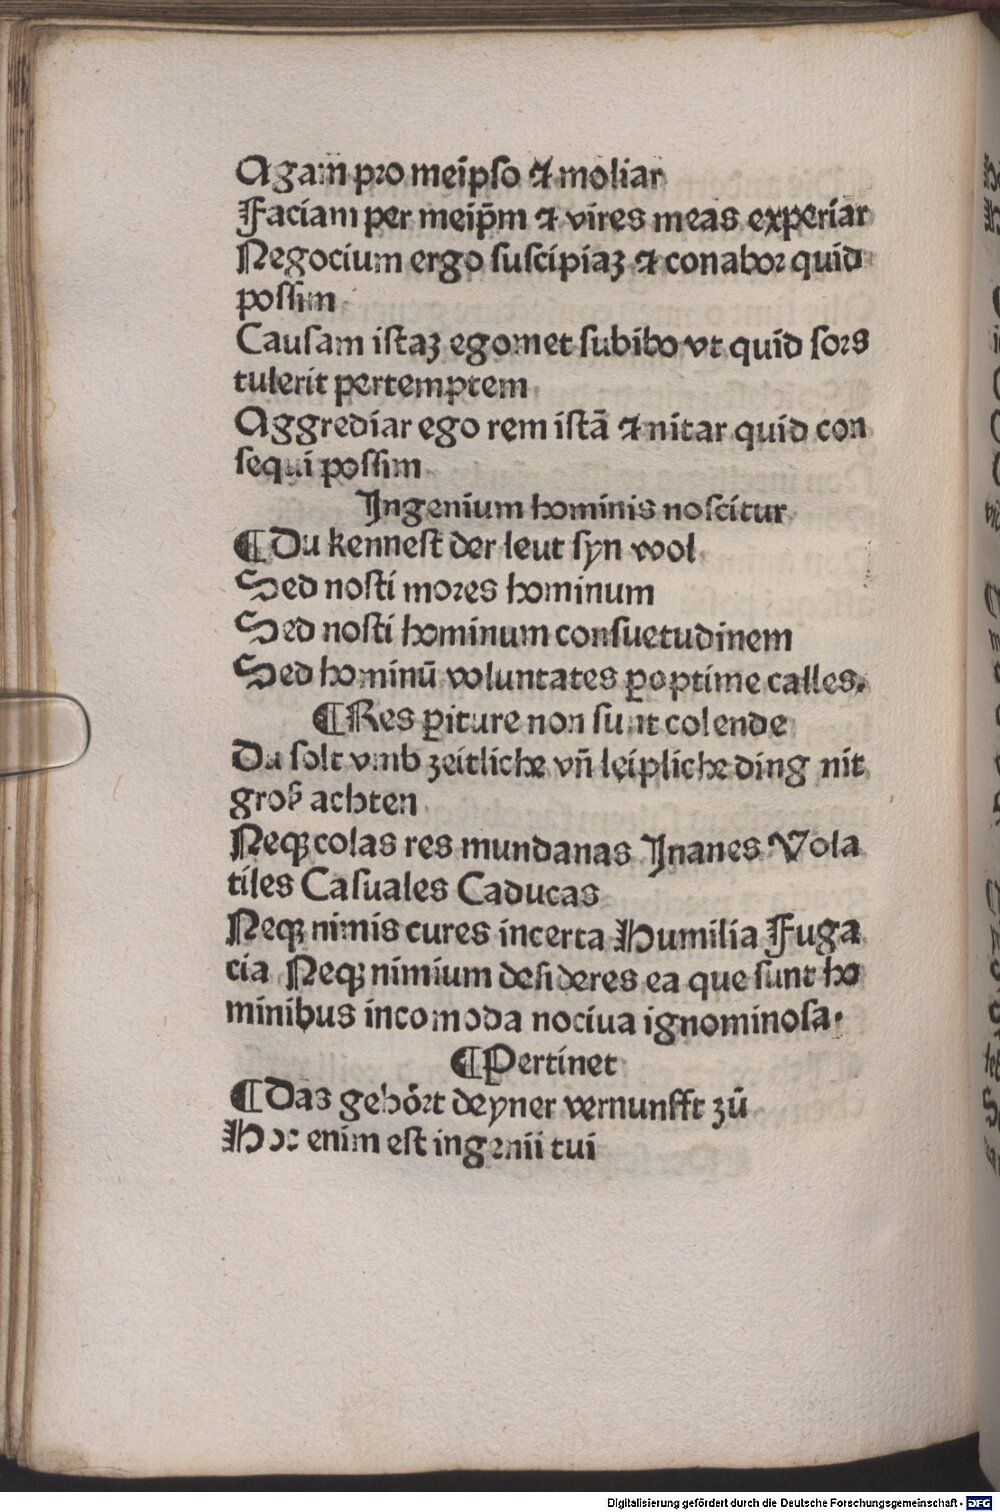 Agam pro meipso ⁊ moliar
Faciam per meip̄m ⁊ vires meas experiar
Negocium ergo suscipiaꝫ ⁊ conabor quid
possim
Causam istaꝫ egomet subibo vt quid sors
tulerit pertemptem
Aggrediar ego rem istā ⁊ nitar quid con
sequi possim
Ingenium hominis noscitur
¶ Du kennest der leut syn wol
Sed nosti mores hominum
Sed nosti hominum consuetudinem
Sed hominū voluntates ꝑoptime calles.
¶ Res ꝑiture non sunt colende
Du solt vmb zeitliche vn̄ leipliche ding nit
groß achten
Neqꝫ colas res mundanas Inanes Vola
tiles Casuales Caducas
Neqꝫ nimis cures incerta Humilia Fuga
cia Neqꝫ nimium desideres ea que sunt ho
minibus incomoda nociua ignominosa.
¶ Pertinet
¶ Das gehört deyner vernunfft zū
Hoc enim est ingenii tui
Digitalisierung gefördert durch die Deutsche Forschungsgemeinschaft - DFG